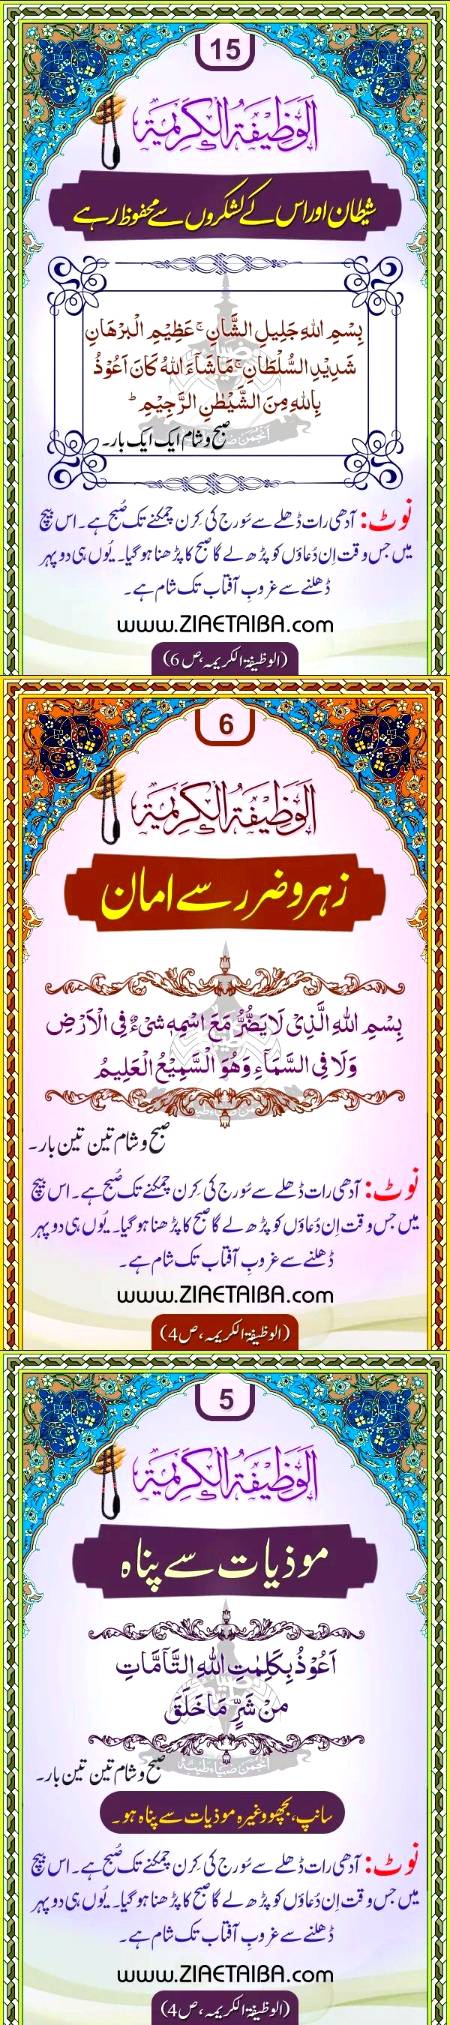 15
الوظیفۃ الکریمۃ
شیطان اور اس کے لشکروں سے محفوظ رہے
بِسْمِ اللہِ جَلِیْلِ الشَّانِ ۚ عَظِیْمِ الْبُرْهَانِ
شَدِیْدِ السُّلْطَانِ ۚ مَاشَآءَ اللہُ کَانَ اَعُوْذُ
بِاللہِ مِنَ الشَّیْطٰنِ الرَّجِیْمِ ؕ
صبح و شام ایک ایک بار۔
نوٹ: آدھی رات ڈھلے سے سُورج کی کِرن چمکنے تک صُبح ہے۔ اس بیچ
میں جس وقت اِن دُعاؤں کو پڑھ لے گا صبح کا پڑھنا ہو گیا۔ یُوں ہی دوپہر
ڈھلنے سے غروبِ آفتاب تک شام ہے۔
www.ZIAETAIBA.com
(الوظیفۃ الکریمہ، ص 6)
6
الوظیفۃ الکریمۃ
زہر و ضرر سے امان
بِسْمِ اللہِ الَّذِیْ لَا یَضُرُّ مَعَ اسْمِهٖ شَیْءٌ فِی الْاَرْضِ
وَلَا فِی السَّمَآءِ وَهُوَ السَّمِیْعُ الْعَلِیْمُ
صبح و شام تین تین بار۔
نوٹ: آدھی رات ڈھلے سے سُورج کی کِرن چمکنے تک صُبح ہے۔ اس بیچ
میں جس وقت اِن دُعاؤں کو پڑھ لے گا صبح کا پڑھنا ہو گیا۔ یُوں ہی دوپہر
ڈھلنے سے غروبِ آفتاب تک شام ہے۔
www.ZIAETAIBA.com
(الوظیفۃ الکریمہ، ص 4)
5
الوظیفۃ الکریمۃ
موذیات سے پناہ
اَعُوْذُ بِکَلِمٰتِ اللہِ التَّآمَّاتِ
مِنْ شَرِّ مَا خَلَقَ
صبح و شام تین تین بار۔
سانپ، بچھو وغیرہ موذیات سے پناہ ہو۔
نوٹ: آدھی رات ڈھلے سے سُورج کی کِرن چمکنے تک صُبح ہے۔ اس بیچ
میں جس وقت اِن دُعاؤں کو پڑھ لے گا صبح کا پڑھنا ہو گیا۔ یُوں ہی دوپہر
ڈھلنے سے غروبِ آفتاب تک شام ہے۔
www.ZIAETAIBA.com
(الوظیفۃ الکریمہ، ص 4)